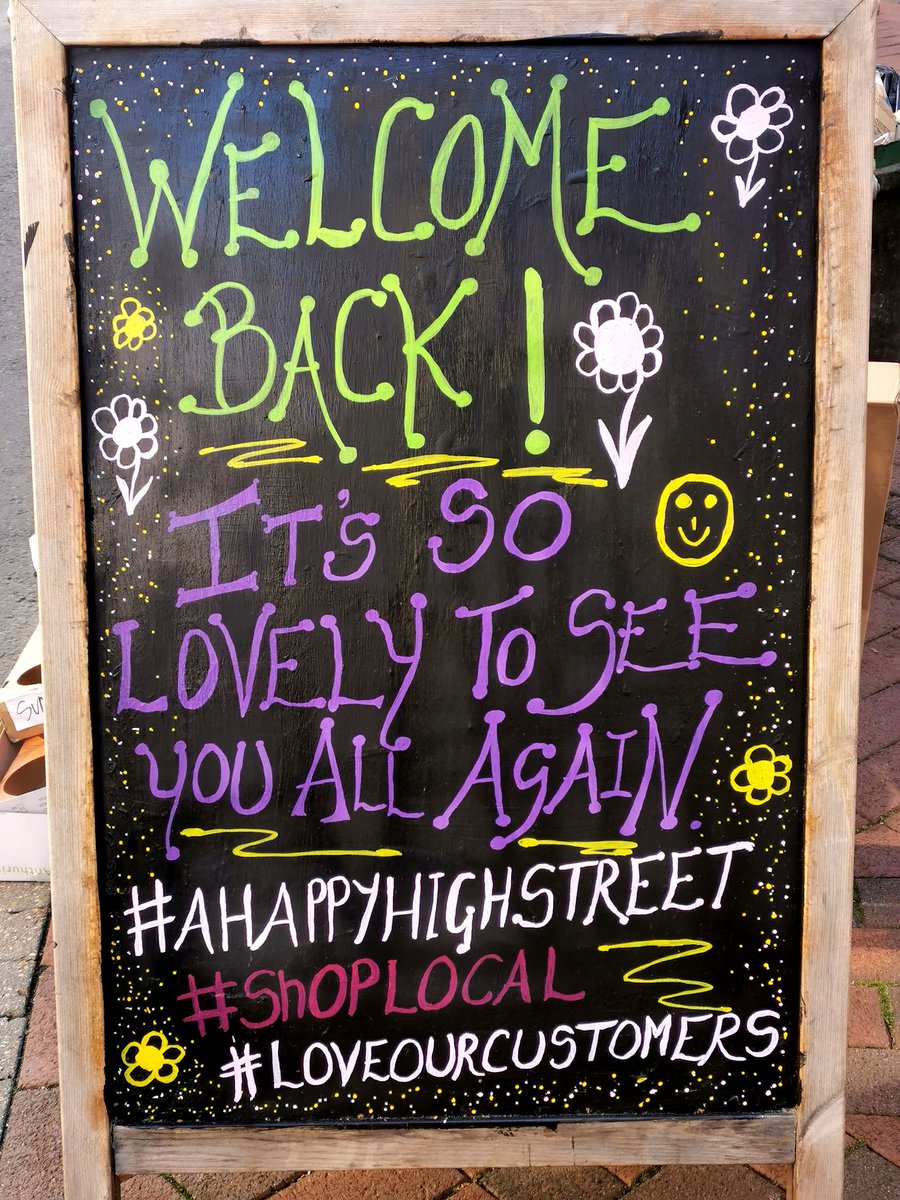 WELCOME
BACK!
IT'S SO
LOVELY TO SEE
YOU ALL AGAIN.
#AHAPPYHIGHSTREET
#ShOPLOCAL
#LOVEOURCUSTOMERS